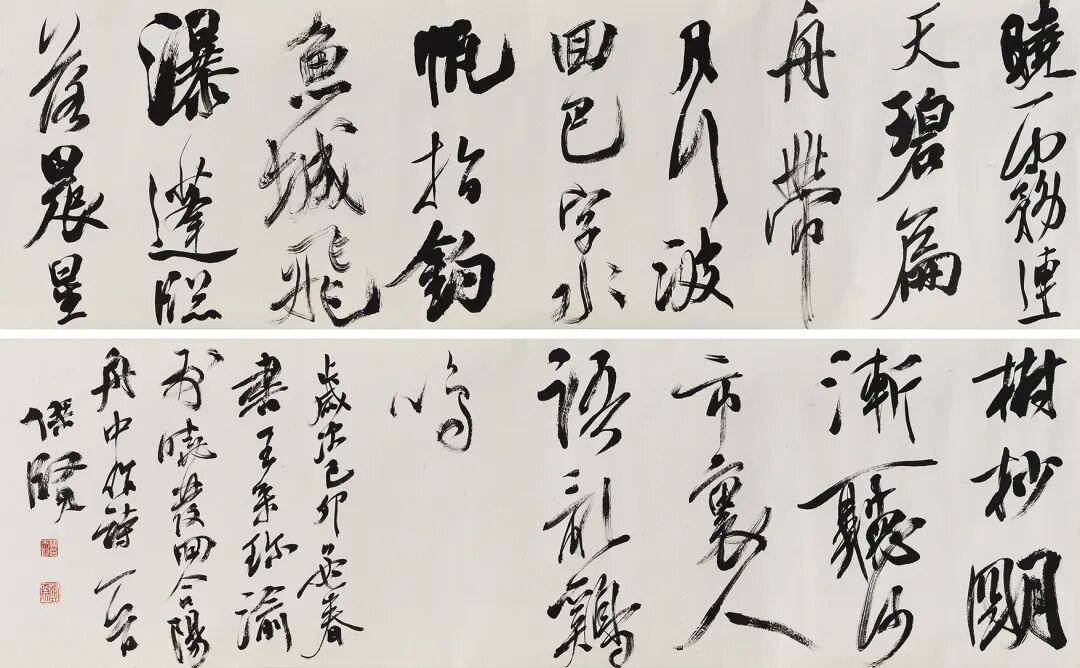 曉霧連
天碧篇
舟帶
月行波
回巴字水
帆指釣
魚城飛
瀑蓬牕
落晨星
樹杪朙
漸聽沙
市裏人
語亂雞
鳴
歲次己卯孟春
書王采珍渝
州曉發回合陽
舟中作詩一首
賢